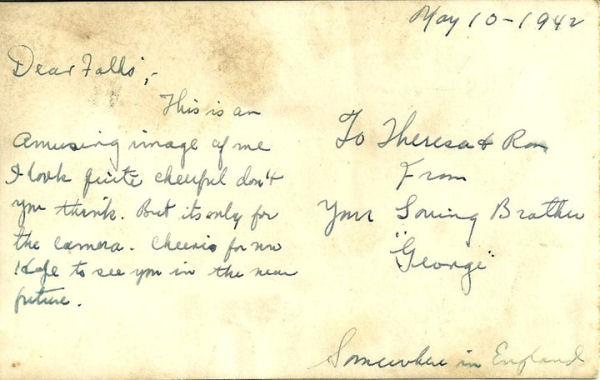 May 10-1942
Dear Folks,-
This is an
amusing image of me
I look quite cheerful don't
you think. But its only for
the camera. Cheerio for now
Hope to see you in the near
future.
To Theresa & Ron
From
Your Loving Brother
"George"
Somewhere in England